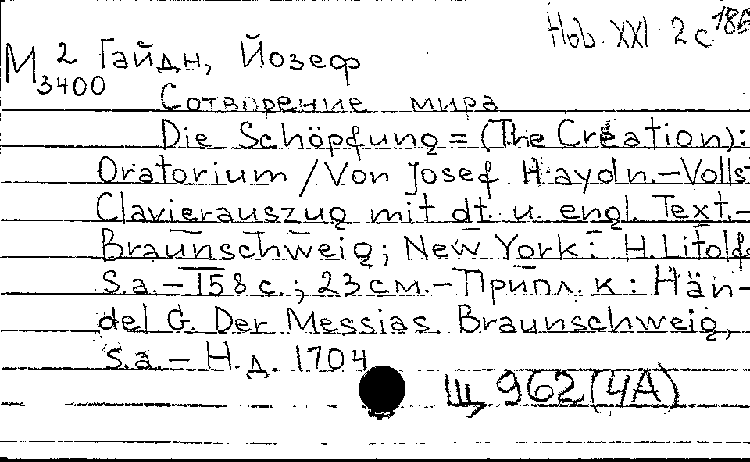 Hob. XXI 2 c 186
М 2 3400 Гайдн, Йозеф
Сотворение мира
Die Schöpfung = (The Creation):
Oratorium / Von Josef Haydn. – Vollst
Clavierauszug mit dt. u. engl. Text. –
Braunschweig; New York: H. Litolf
S.a. – 158 с.; 23 см. – Припл. к: Hän-
del G. Der Messias. Braunschweig,
S.a. – Н.д. 1704
Щ 962 (4А)